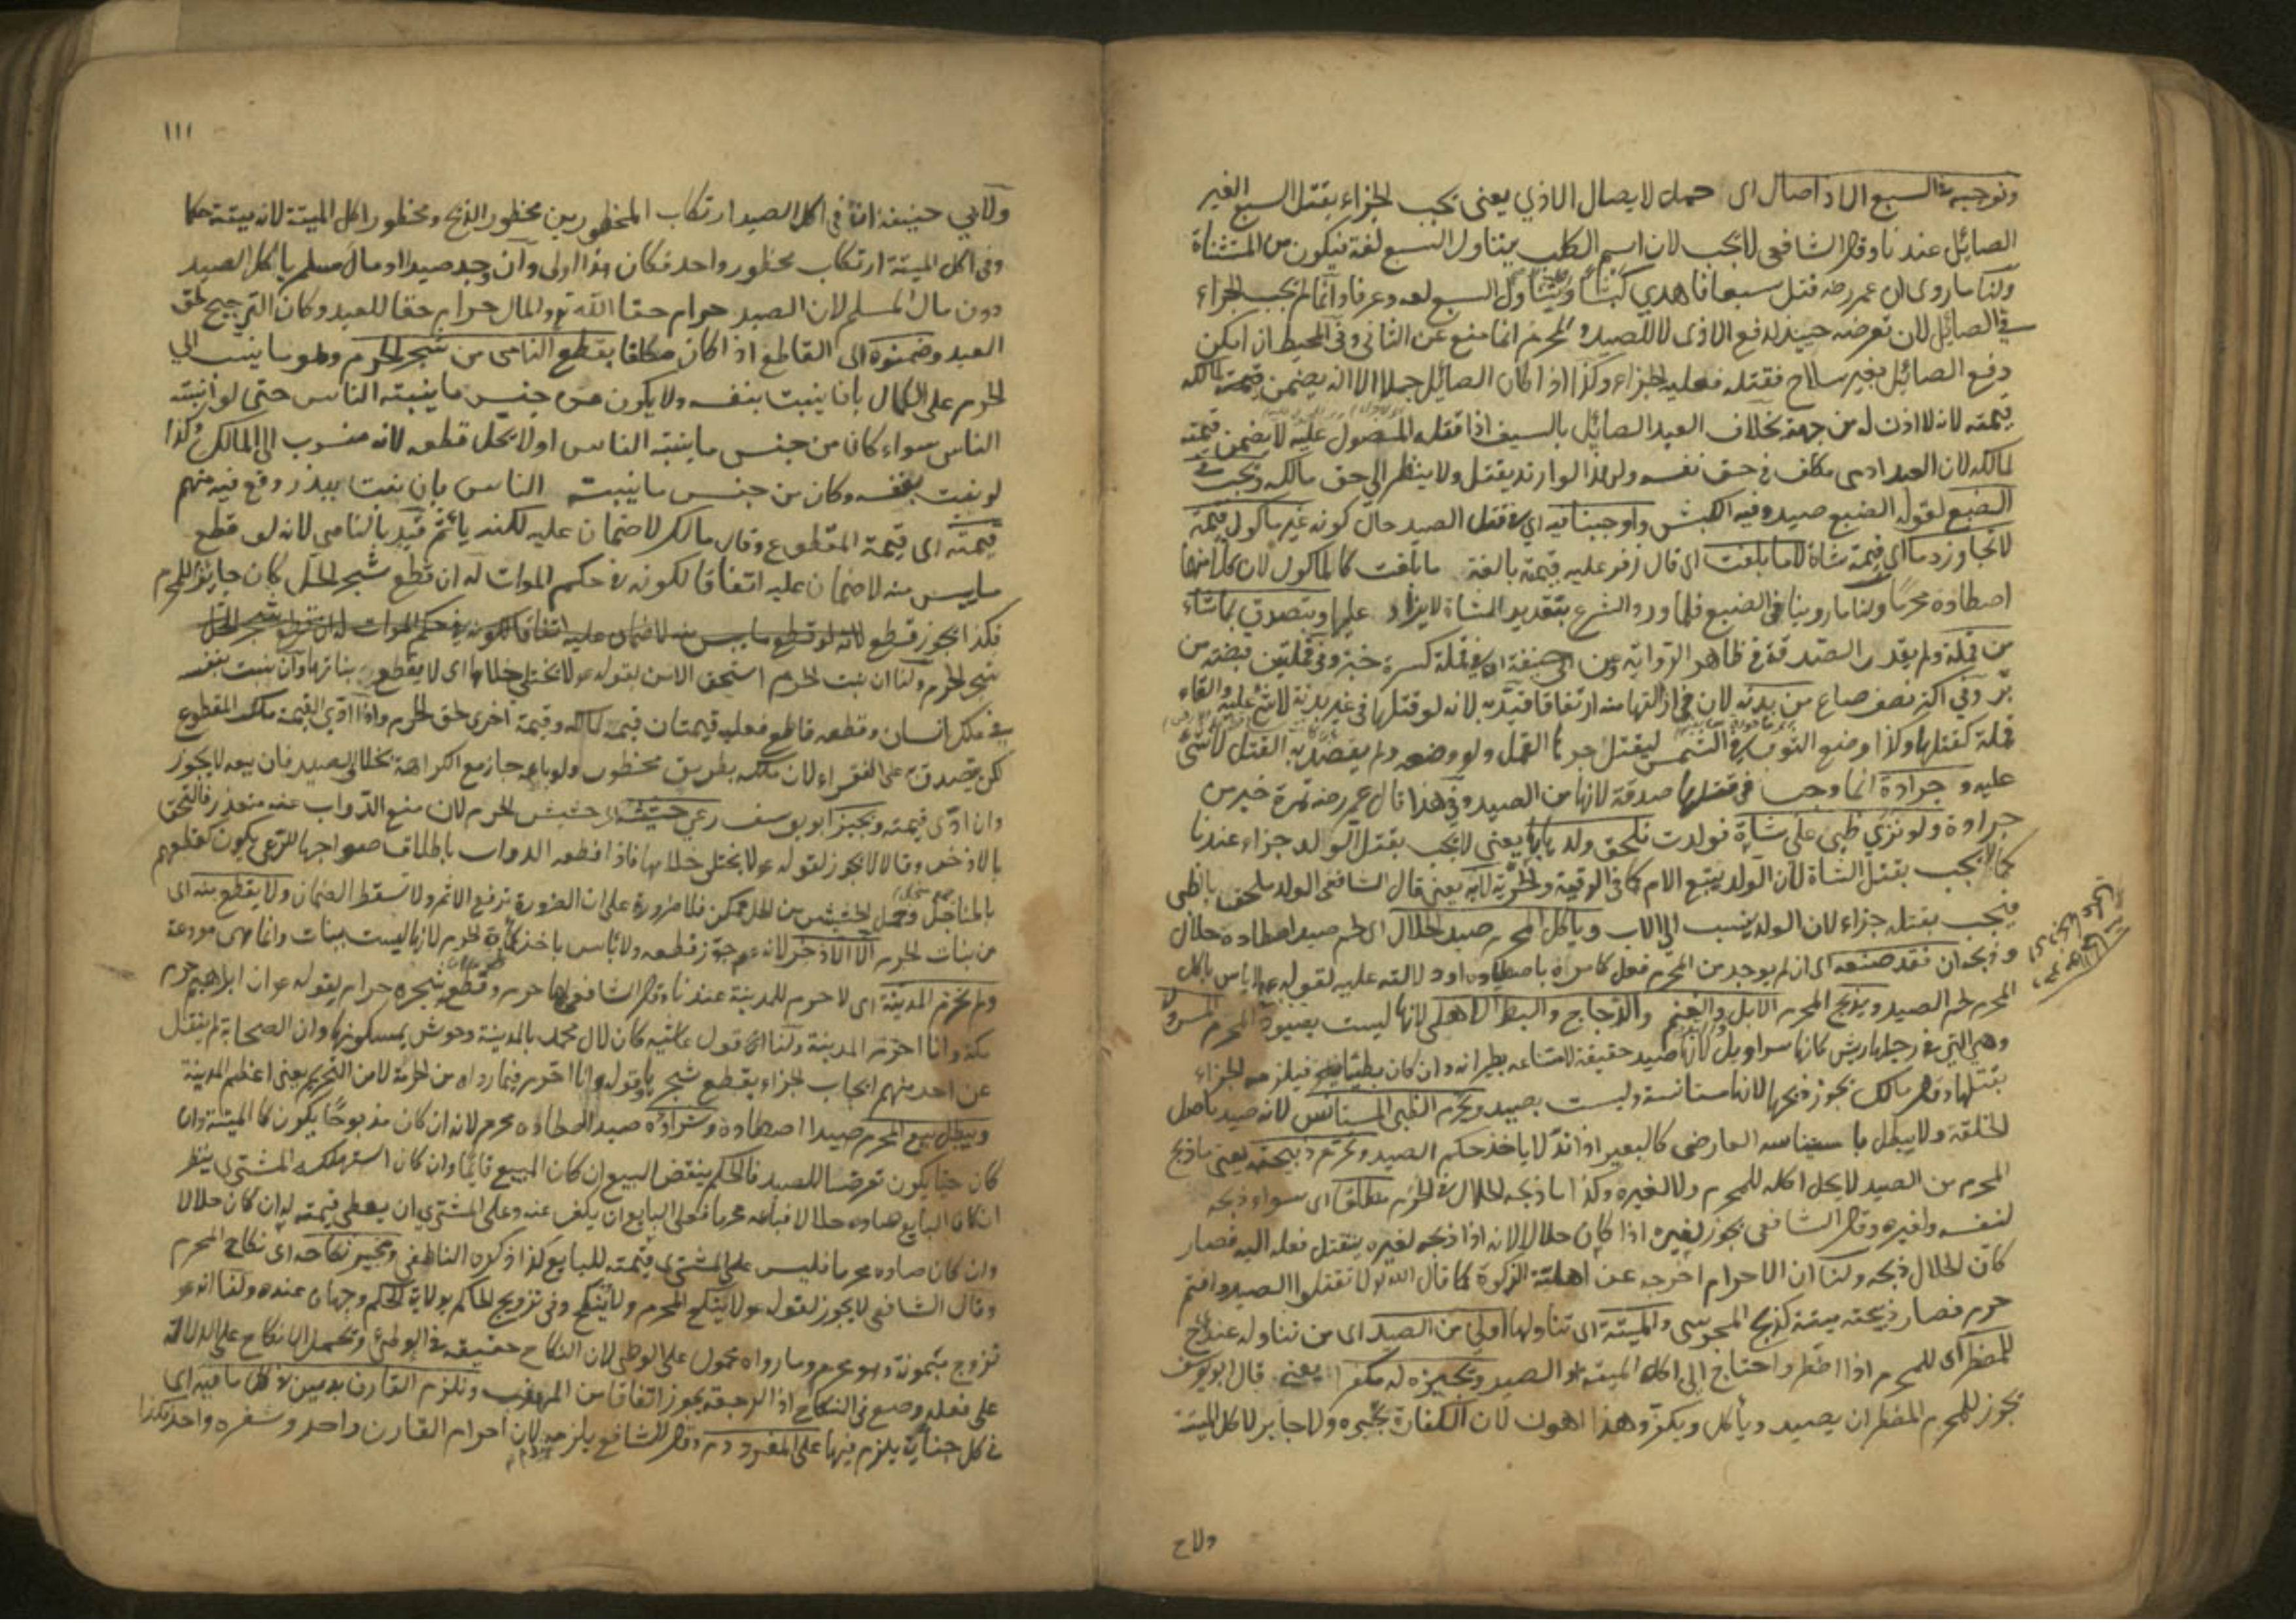 ونوجبه في السبع الا اذا صال اى حمل لايصال الاذي يعنى يجب الجزاء بقتل السبع الغير
الصائل عندنا وقال الشافعى لا يجب لان اسم الكلب يتناول السبع لغة فيكون من المستثناة
ولنا ما روى ان عمر رضه قتل سبعا فاهدي كبشا السبع وعرفا وانما لم يجب الجزاء
في الصائل لان تعرضه حينئذ لدفع الاذى لا للصيد والمحرم انما منع عن الثانى وفى المحيط ان امكن
دفع الصائل بغير سلاح فقتله فعليه الجزاء وكذا اذا كان الصائل جملا الا انه يضمن قيمته لمالكه
قيمته لانه لا اذن له من جهته بخلاف العبد الصائل بالسيف اذا قتله المصول عليه لا يضمن قيمته
لمالكه لان العبد ادمى مكلف فى حق نفسه ولهذا لو ارتد يقتل ولا ينظر الى حق مالكه ونجب في
الضبع لقوله الضبع صيد وفيه الكبش واوجبنا فيه اى في قتل الصيد حال كونه غير مأكول قيمة
لا تجاوز دما اى قيمة شاة لا ما بلغت اى قال زفر عليه قيمته بالغة ما بلغت كالمأكول لان كلا منهما
اصطاده محرما ولنا ما روينا فى الضبع فلما ورد الشرع بتقدير الشاة لا يزاد عليها ويتصدق بما شاء
من قملة ولم يقدر الصدقة فى ظاهر الرواية وعن ابى حنيفة ان فى قملة كسرة خبز وفى قملتين قبضة من
بر وفى اكثر نصف صاع من بدنه لان فى ازالتها منه ارتفاقا قيد به لانه لو قتلها فى غير بدنه لا شئ عليه والقاء
قملة كقتلها وكذا لو وضع الثوب فى الشمس ليقتل حرها القمل ولو وضعه ولم يقصد به القتل لا شئ
عليه وجرادة انما وجب فى قتلها صدقة لانها من الصيد وفى هذا قال عمر رضه تمرة خير من
جرادة ولو نزى ظبى على شاة فولدت نلحق ولدها بها يعنى لا يجب بقتل الولد جزاء عندنا
كما لا يجب بقتل الشاة لان الولد يتبع الام كما فى الرقية والحرية لا به يعنى قال الشافعى الولد ملحق بالظبى
فيجب بقتله جزاء لان الولد ينسب الى الاب ويأكل المحرم صيد الحلال اى لحم صيد اصطاده حلال
وذبحه ان فقد صنعه اى ان لم يوجد من المحرم فعل كامره باصطياده او دلالته عليه لقوله عم لا باس باكل
المحرم لحم الصيد ويذبح المحرم الابل والغنم والدجاج والبط الاهلى لانها ليست بصيود المحرم
وهى التى فى رجلها ريش كانها سراويل لانها صيد حقيقة لامتناعه بطيرانه وان كان بطيئا فيلزمه الجزاء
بقتلها وقال مالك يجوز ذبحها لانها مستأنسة وليست بصيد ويحرم الظبى المستأنس لانه صيد باصل
الخلقة ولا يبطل باستيناسه العارضى كالبعير اذا ند لا ياخذ حكم الصيد ونحرم ذبيحته يعنى ما ذبح
المحرم من الصيد لا يحل اكله للمحرم ولا لغيره وكذا ما ذبحه الحلال في الحرم مطلقا اى سواء ذبحه
لنفسه ولغيره وقال الشافعى يجوز لغيره اذا كان حلالا لانه اذا ذبحه لغيره ينتقل فعله اليه فصار
كان الحلال ذبحه ولنا ان الاحرام اخرجه عن اهلية الذكوة كما قال الله تع لا تقتلوا الصيد وانتم
حرم فصار ذبيحته ميتة كذبح المجوسى والميتة اى تناولها اولى من الصيد اى من تناوله عند ح
للمضطر اى للمحرم اذا اضطر واحتاج الى اكل الميتة او الصيد ونجيزه له مكفرا يعنى قال ابو يوسف
يجوز للمحرم المضطر ان يصيد ويأكل ويكفر وهذا اهون لان الكفارة تجبره ولا جابر لاكل الميتة
ولاح
١١١
ولابى حنيفة ان فى اكل الصيد ارتكاب المحظورين محظور الذبح ومحظور اكل الميتة لانه ميتة حكما
وفى اكل الميتة ارتكاب محظور واحد فكان هذا اولى وان وجد صيدا او مال مسلم يأكل الصيد
دون مال المسلم لان الصيد حرام حقا الله تع والمال حرام حقا للعبد وكان الترجيح لحق
العبد وضمنوه الى القاطع اذا كان مكلفا بقطع النامى من شجر الحرم وهو ما ينسب الى
الحرم على الكمال بان ينبت بنفسه ولا يكون من جنس ما ينبته الناس حتى لو انبته
الناس سواء كان من جنس ما ينبته الناس اولا يحل قطعه لانه منسوب الى المالك وكذا
لو نبت بنفسه وكان من جنس ما ينبته الناس بان نبت ببذر وقع فيه منهم
قيمته اى قيمة المقطوع وقال مالك لا ضمان عليه لكنه يأثم قيد بالنامى لانه لو قطع
ما يبس منه لا ضمان عليه اتفاقا لكونه في حكم الموات له ان قطع شجر الحل كان جايزا للمحرم
فكذا يجوز قطع لانه لو قطع ما يبس منه لا ضمان عليه اتفاقا لكونه في حكم الموات له ان قطع شجر الحل
شجر الحرم ولنا ان نبت الحرم استحق الامن بقوله عم لا يختلى خلاها اى لا يقطع نباتها وان نبت بنفسه
في ملك انسان وقطعه قاطع فعليه قيمتان قيمة لمالكه وقيمة اخرى لحق الحرم واذا ادى القيمة ملك المقطوع
لكن يتصدق على الفقراء لان ملكه بطريق محظور ولو باعه جاز مع الكراهة بخلاف الصيد فان بيعه لا يجوز
وان ادى قيمته ويجيز ابو يوسف رعي حشيشه اى حشيش الحرم لان منع الدواب عنه متعذر فالتحق
بالاذخر وقالا لا يجوز لقوله عم لا يختلى خلاها فاذا قطعه الدواب باطلاق صواحبها للرعى يكون كقطعهم
بالمناجل وحمل الحشيش من الحل ممكن فلا ضرورة على ان الضرورة ترفع الاثم ولا تسقط الضمان ولا يقطع منه اى
من بنات الحرم الا الاذخر لانه عم جوز قطعه ولا باس باخذ كمأة الحرم لانها ليست بنبات وانما هى مودعة
ولم نحرم المدينة اى لا حرم للمدينة عندنا وقال الشافعى لها حرم وقطع شجره حرام بقوله عم ان ابراهيم حرم
مكة وانا احرم المدينة ولنا ان قول عائشة كان لال محمد بالمدينة وحوش يمسكونها وان الصحابة لم ينقل
عن احد منهم ايجاب الجزاء بقطع شجرها وقوله وانا احرم فيما رواه من الحرمة لا من التحريم يعنى اعظم المدينة
ويبطل بيع المحرم صيدا اصطاده وشراؤه صيدا اصطاده محرم لانه ان كان مذبوحا يكون كالميتة وان
كان حيا يكون تعرضا للصيد فالحكم ينقض البيع ان كان المبيع قايما وان كان استهلكه المشترى ينظر
ان كان البايع صاده حلالا فباعه محرما فعلى البايع ان يكفر عنه وعلى المشترى ان يعطى قيمته له ان كان حلالا
وان كان صاده محرما فليس على المشترى قيمته للبايع كذا ذكره الناطفى ونجيز نكاحه اى نكاح المحرم
وقال الشافعى لا يجوز لقوله عم لا ينكح المحرم ولا ينكح وفى تزويج الحاكم بولاية الحكم وجهان عنده ولنا انه عم
تزوج بميمونة وهو محرم وما رواه محمول على الوطى لان النكاح حقيقة فى الوطئ وتحمل الانكاح على الدلالة
على فعله وضع فى النكاح اذ الرجعة يجوز اتفاقا من ونلزم القارن بدمين في كل ما فيه اى
فى كل جناية يلزم فيها على المفرد دم وقال الشافعى يلزمه لان احرام القارن واحد وسفره واحد هكذا